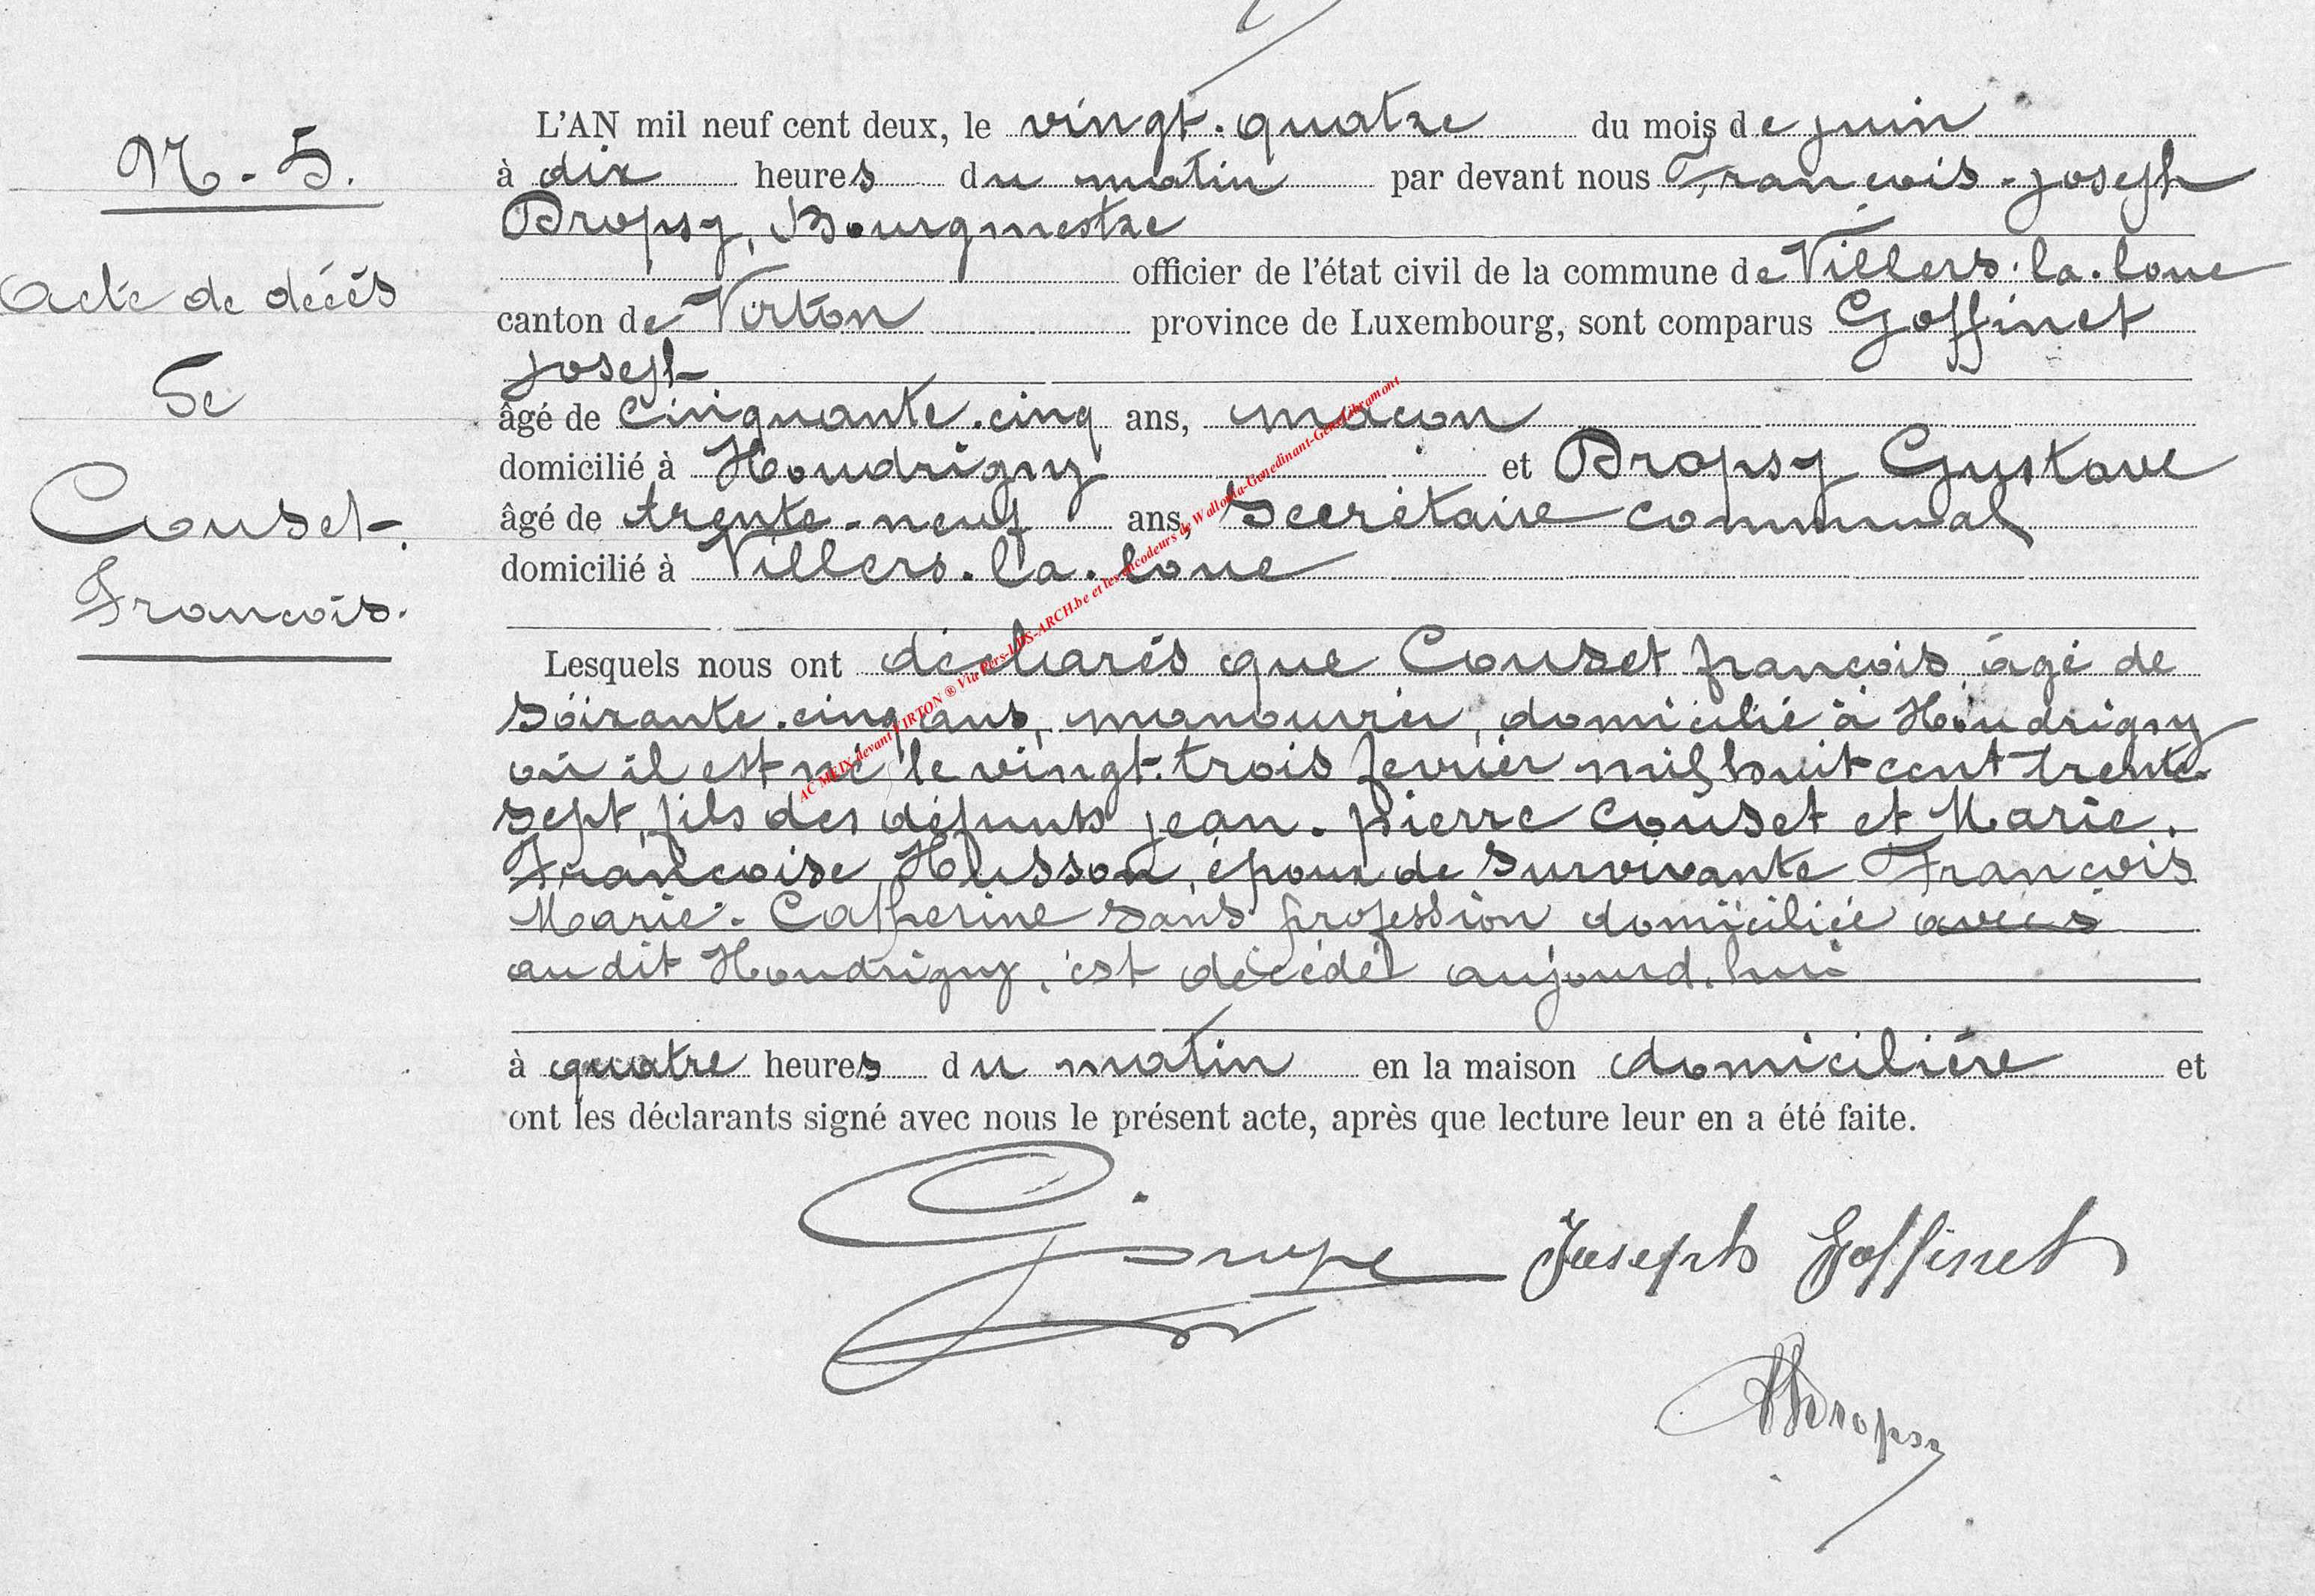 N. 5.
Acte de décès
de
Couset.
François.
L'AN mil neuf cent deux, le vingt-quatre du mois de juin
à dix heures du matin par devant nous François-joseph
Dropsy, Bourgmestre
officier de l'état civil de la commune de Villers-la-loue
canton de Virton province de Luxembourg, sont comparus Goffinet
joseph
âgé de cinquante-cinq ans, macon
domicilié à Houdrigny et Dropsy Gustave
âgé de trente-neuf ans, secrétaire communal
domicilié à Villers-la-loue
Lesquels nous ont déclarés que Couset françois, agé de
soixante-cinq ans, manouvrier, domicilié à Houdrigny
où il est né le vingt-trois fevrier mil huit cent trente
sept, fils des défunts jean-pierre Couset et Marie-
Francoise Husson, époux de survivante François
Marie-Catherine sans profession domiciliée avecs
audit Houdrigny, est décédé aujourd'hui
à quatre heures du matin en la maison domicilière et
ont les déclarants signé avec nous le présent acte, après que lecture leur en a été faite.
Joseph Goffinet
Dropsy
AC MEIX devant VIRTON ® Via Pers-LDS-ARCH.be et les encodeurs de Wallonia-Gomedinant-Geneolibramont